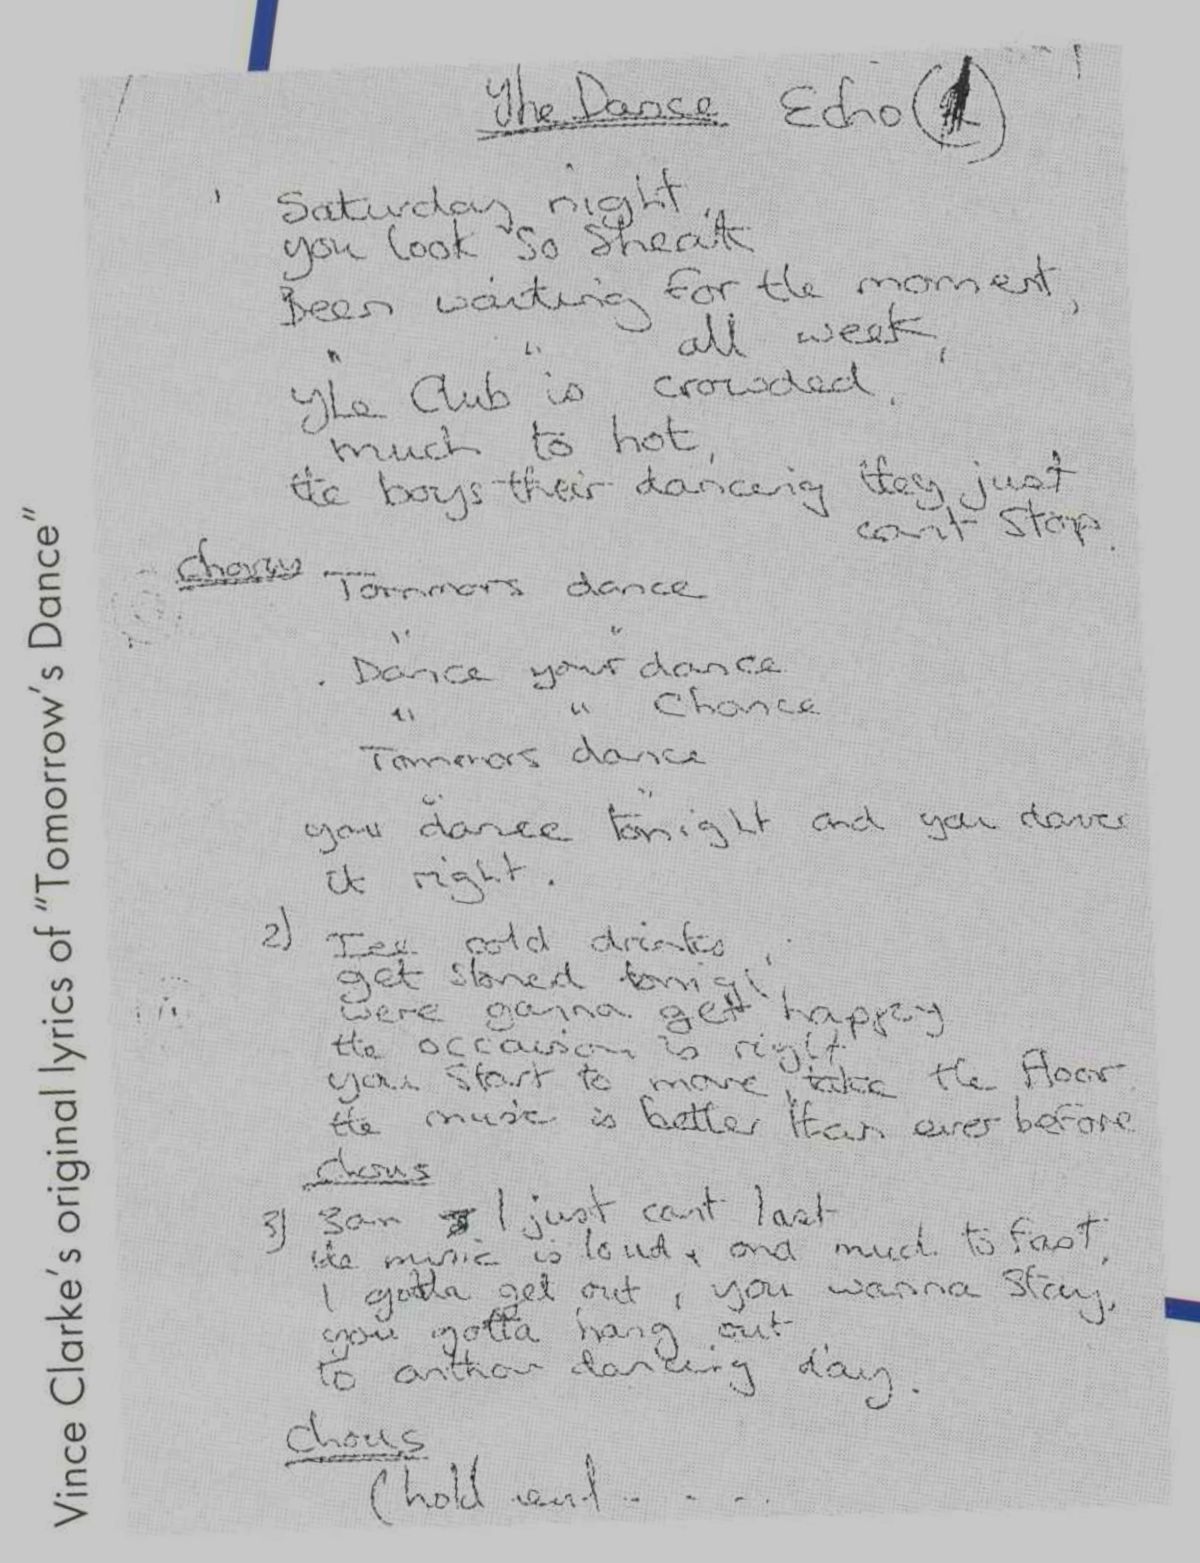 The Dance Echo
Saturday night,
you look so Sheak
Been waiting for the moment,
" " all week,
The Club is crowded,
much to hot,
the boys their dancing they just
cant stop.
Chorus
Tommors dance
" "
Dance your dance
" " Chance
Tommors dance
" "
you dance tonight and you dance
it right.
2) Ice cold drinks,
get stoned tonigt,
were ganna get happy
the occaision is right
you start to move, take the floor
the music is better than ever before
Chous
3) 3am I just cant last
the music is loud, and much to fast,
I gotta get out, you wanna stay,
you gotta hang out
to anthor dancing day.
Chous
(hold . . . .
Vince Clarke's original lyrics of "Tomorrow's Dance"